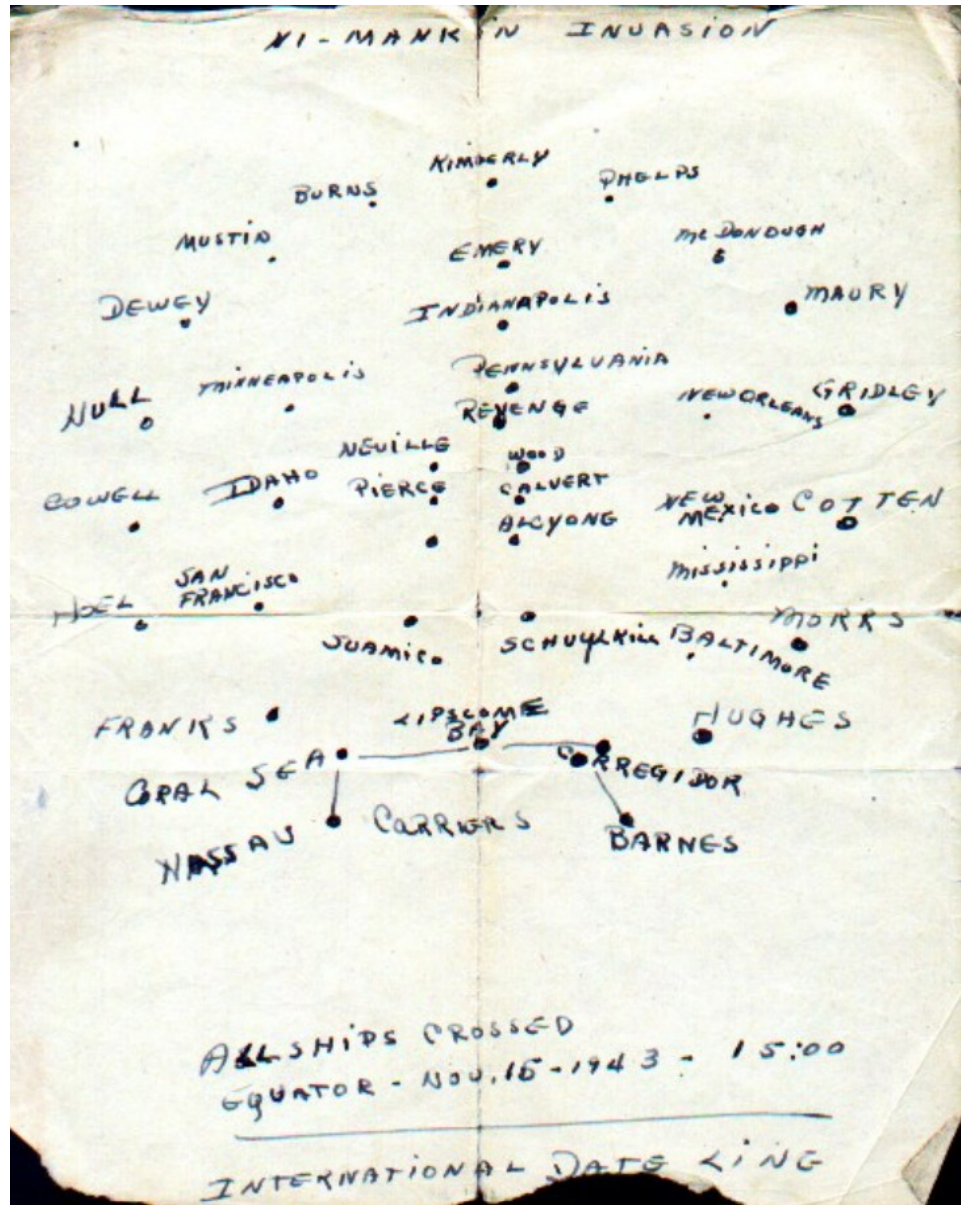 NI-MANKIN INVASION
KIMBERLY
BURNS
PHELPS
MUSTIN
EMERY
Mc DONOUGH
DEWEY
INDIANAPOLIS
MAURY
PENNSYLVANIA
MINNEAPOLIS
NULL
REVENGE
NEW ORLEANS
GRIDLEY
NEVILLE
WOOD
COWELL
IDAHO
PIERCE
CALVERT
NEW
MEXICO
COTTEN
ALCYONG
MISSISSIPPI
SAN
FRANCISCO
NOEL
MORRS
SUAMICO
SCHUYLKILL
BALTIMORE
FRANKS
LIPSCOME
BAY
HUGHES
CORAL SEA
CORREGIDOR
NASSAU
CARRIERS
BARNES
ALL SHIPS CROSSED
EQUATOR - NOV. 15 - 1943 - 15:00
INTERNATIONAL DATE LINE